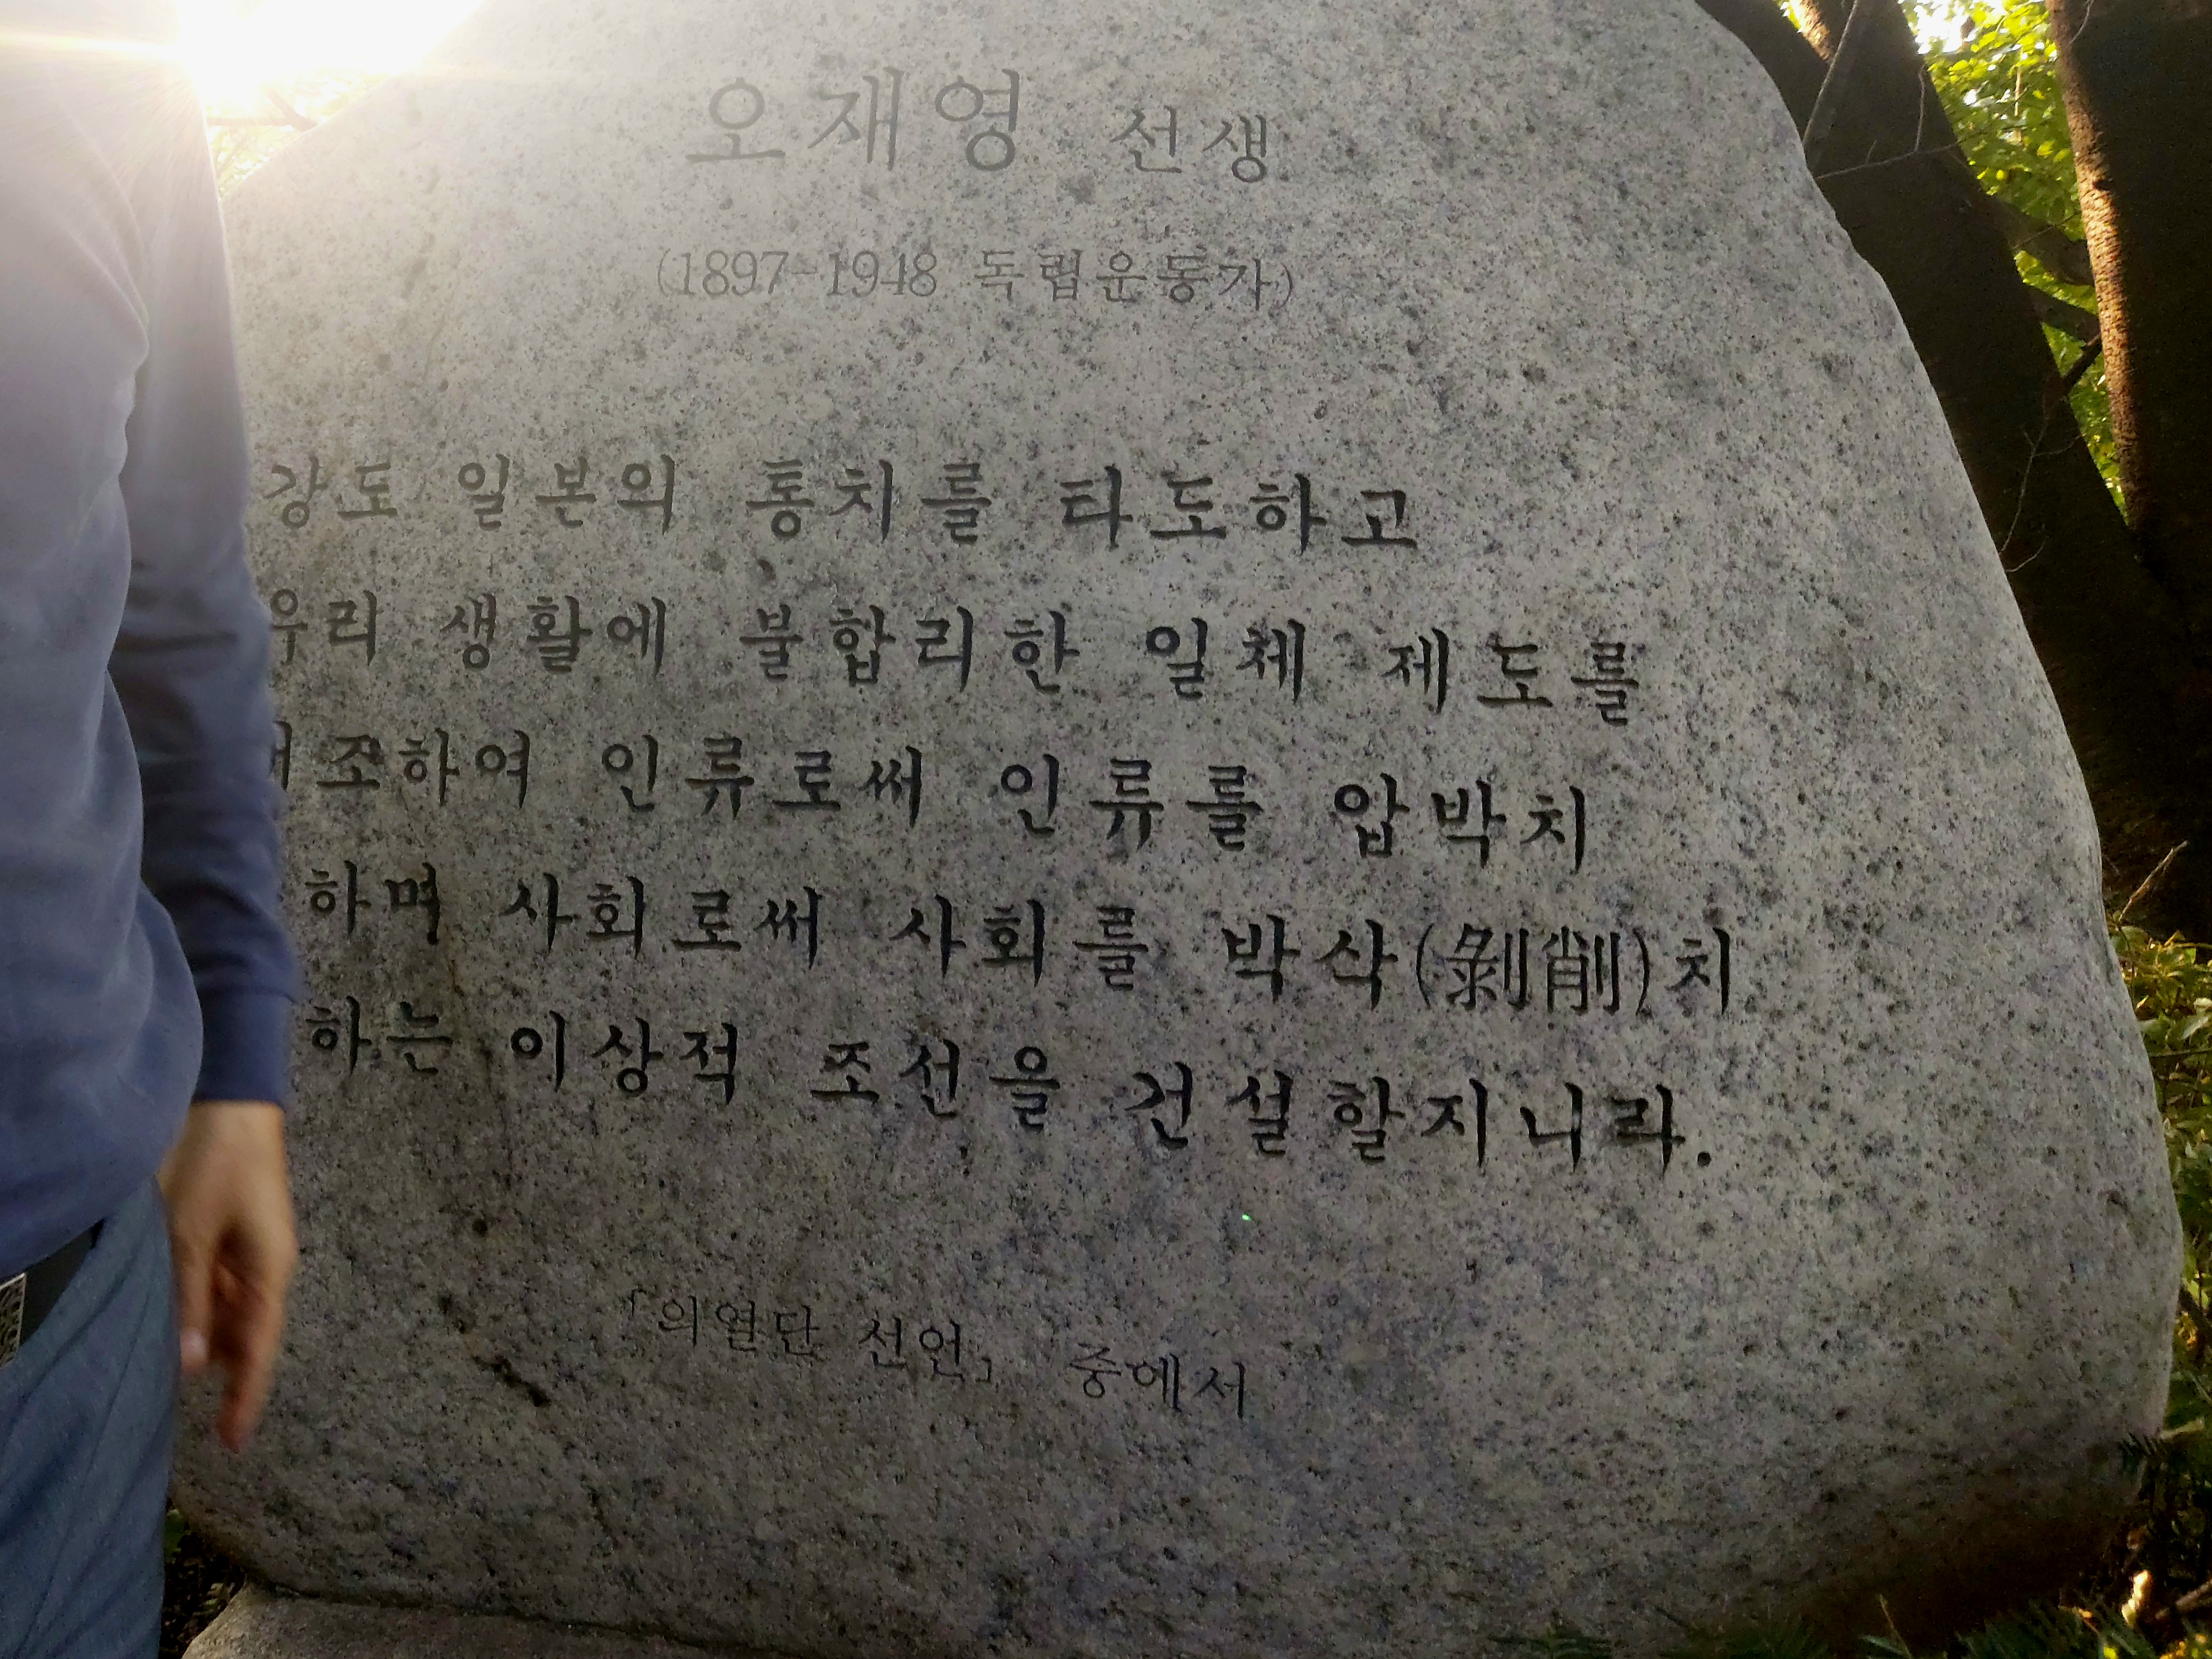 오재영 선생
(1897-1948 독립운동가)
강도 일본의 통치를 타도하고
우리 생활에 불합리한 일체 제도를
인류로써 인류를 압박치
하며 사회로써 사회를 박삭(剝削)치
하는 이상적 조선을 건설할지니라.
「의열단 선언」 중에서